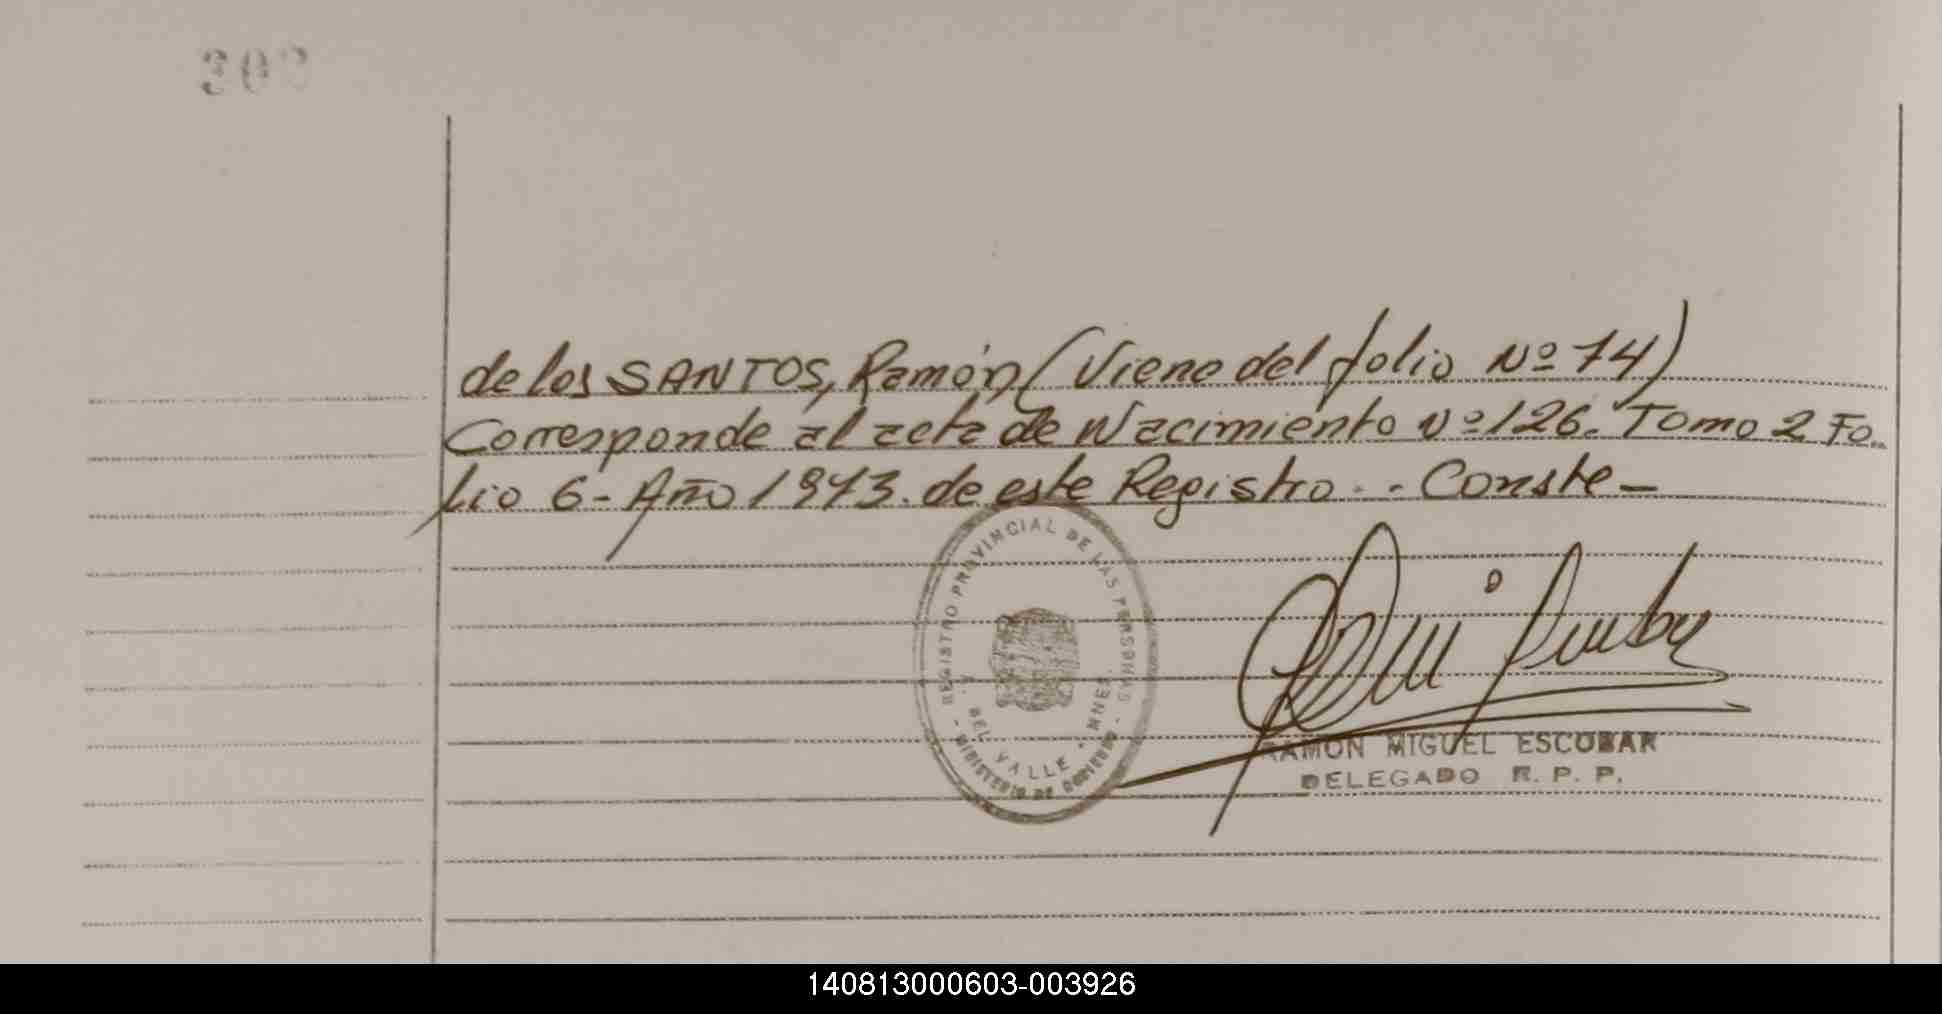 de los SANTOS, Ramón (Viene del folio Nº 74)
Corresponde al acta de Nacimiento Nº 126. Tomo 2 Fo-
lio 6 - Año 1973. de este Registro.. - Conste -
REGISTRO PROVINCIAL DE LAS PERSONAS
DEL VALLE - MNES.
- MINISTERIO DE GOBIERNO -
RAMON MIGUEL ESCOBAR
DELEGADO R. P. P.
140813000603-003926